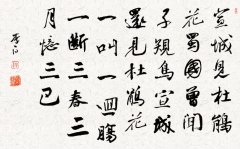 宣城見杜鵑
花蜀國曾聞
子規鳥宣城
還見杜鵑花
一叫一迴腸
一斷三春三
月憶三巴